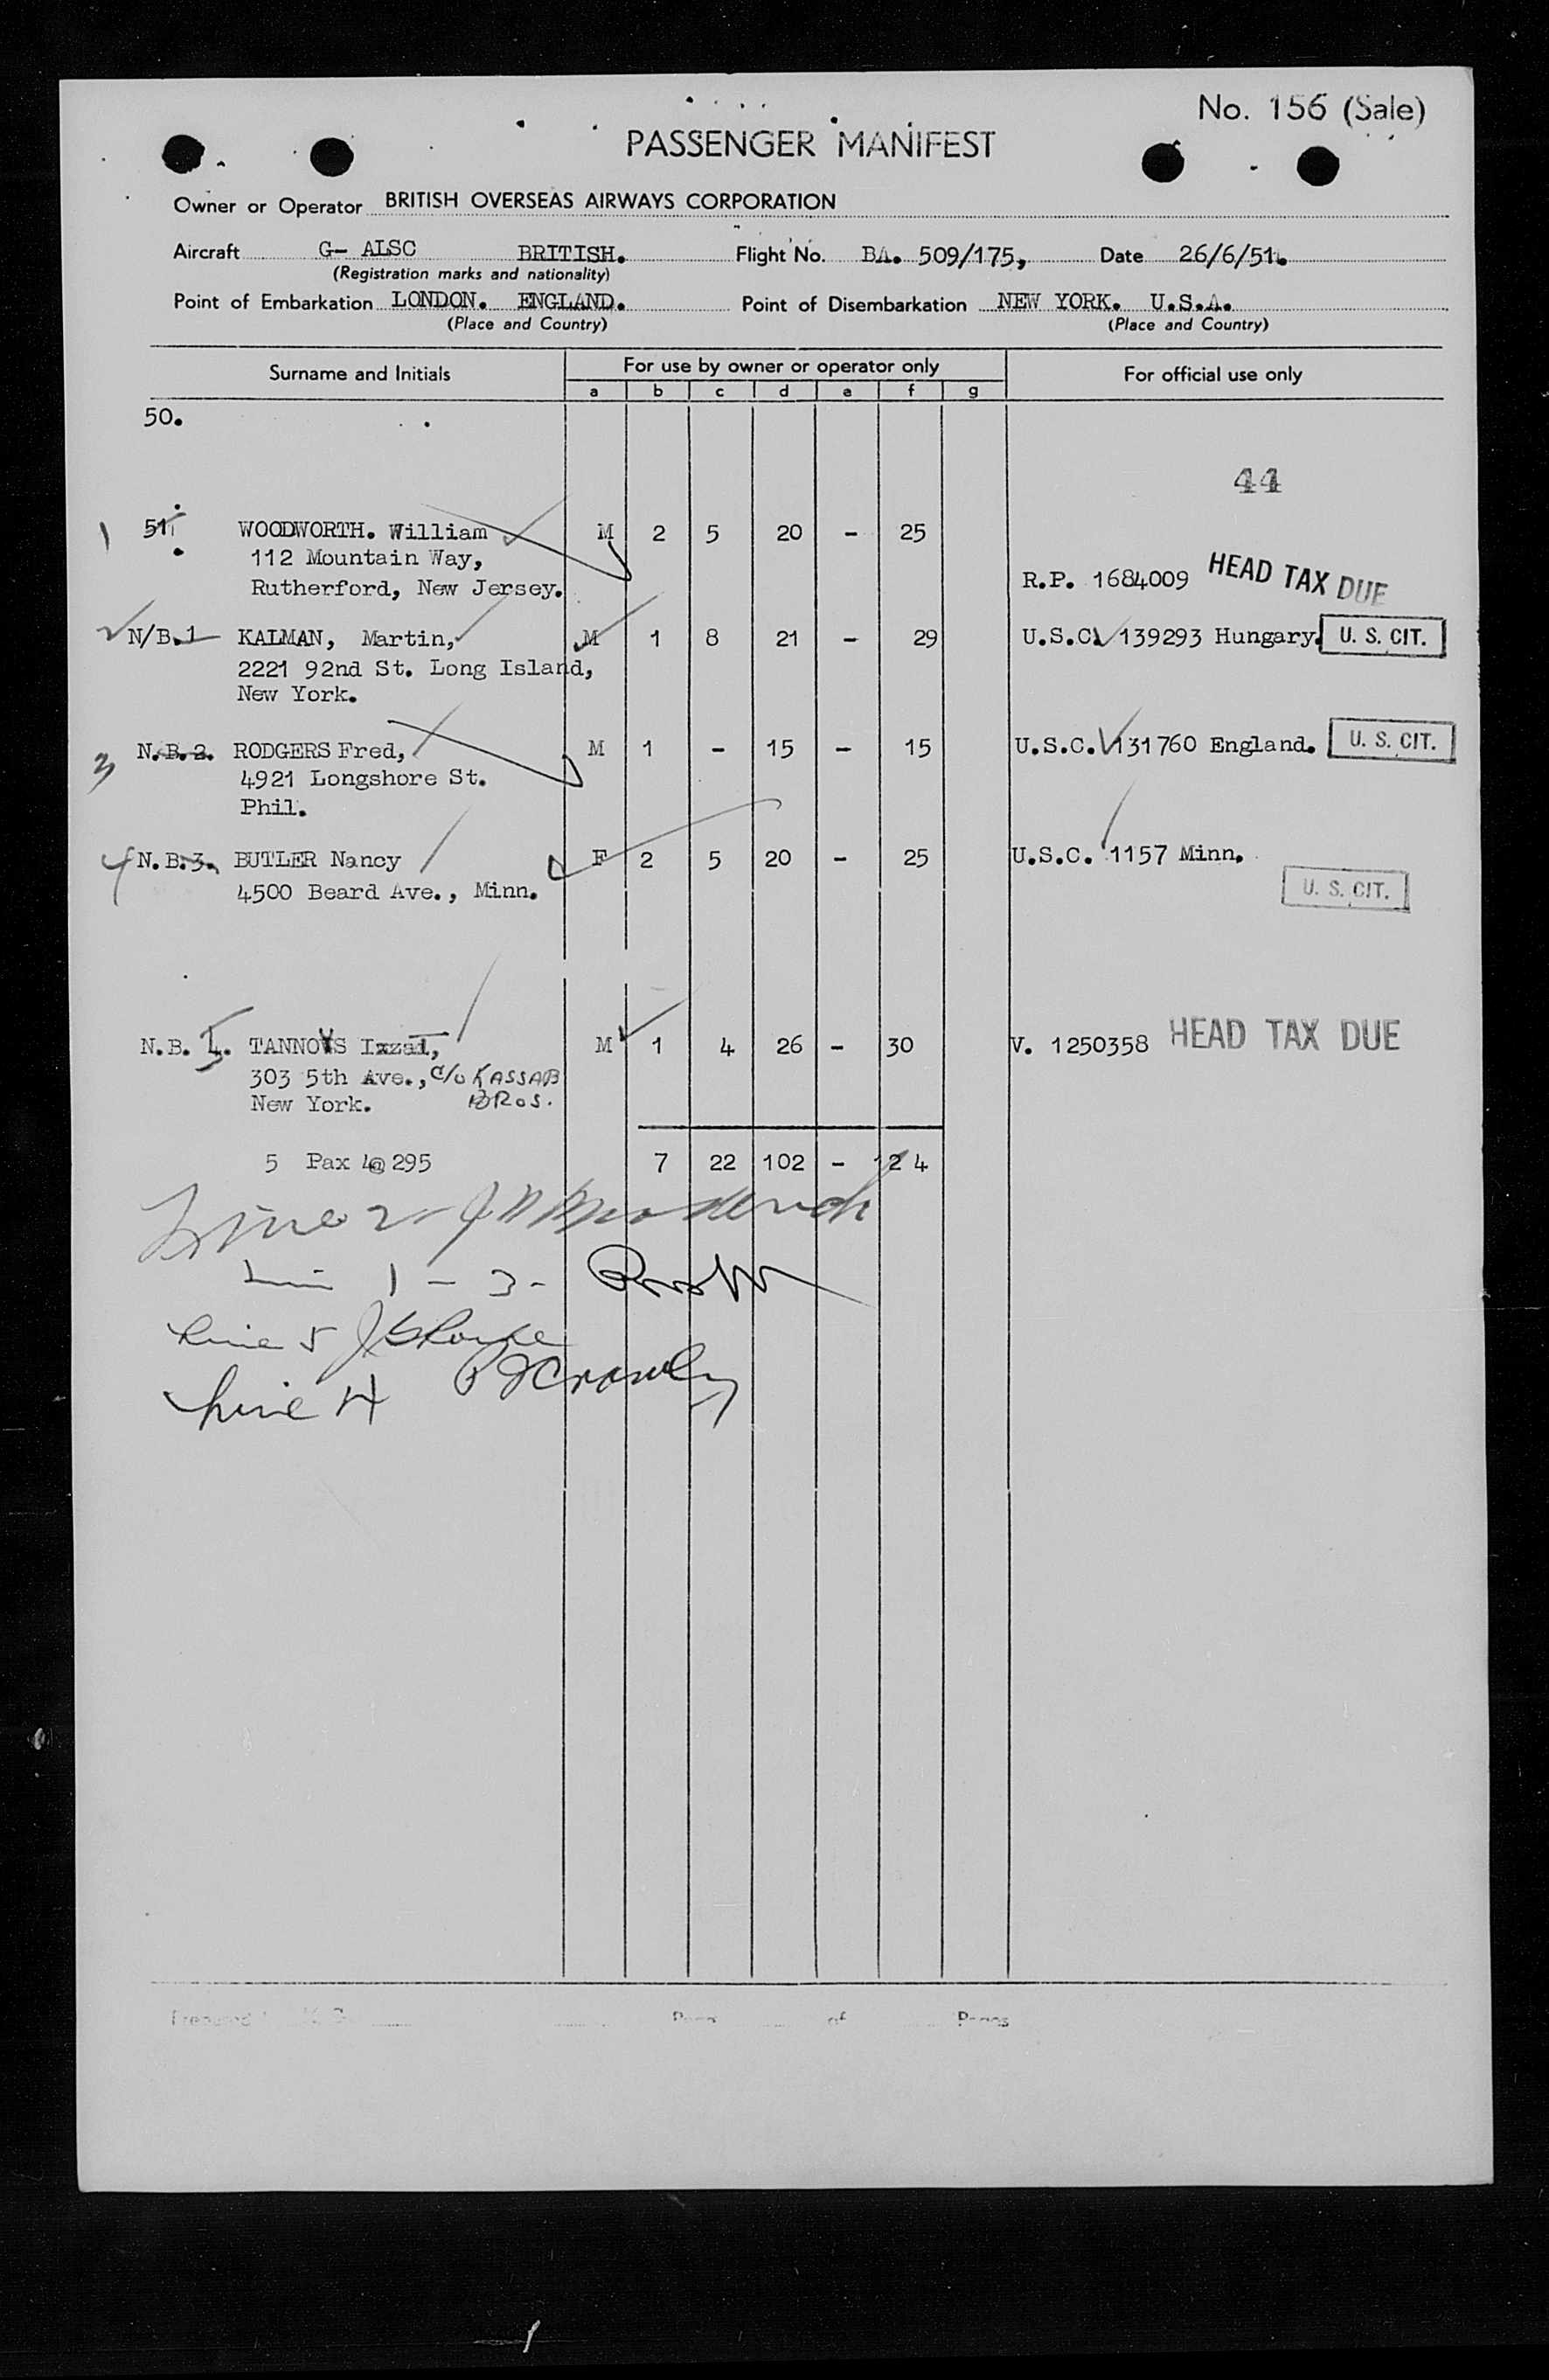 No. 156 (Sale)
PASSENGER MANIFEST
Owner or Operator BRITISH OVERSEAS AIRWAYS CORPORATION
Aircraft G- ALSC BRITISH. Flight No. BA. 509/175, Date 26/6/51.
(Registration marks and nationality)
Point of Embarkation LONDON. ENGLAND. Point of Disembarkation NEW YORK. U.S.A.
(Place and Country) (Place and Country)
Surname and Initials For use by owner or operator only For official use only
a b c d e f g
50.
44
1 51 WOODWORTH. William M 2 5 20 - 25
112 Mountain Way,
Rutherford, New Jersey. R.P. 1684009 HEAD TAX DUE
2 N/B.1 KALMAN, Martin, M 1 8 21 - 29 U.S.C. 139293 Hungary. U. S. CIT.
2221 92nd St. Long Island,
New York.
3 N.B.2. RODGERS Fred, M 1 - 15 - 15 U.S.C. 131760 England. U. S. CIT.
4921 Longshore St.
Phil.
4 N.B.3. BUTLER Nancy F 2 5 20 - 25 U.S.C. 1157 Minn.
4500 Beard Ave., Minn. U. S. CIT.
N.B. 5 TANNOYS M 1 4 26 - 30 V. 1250358 HEAD TAX DUE
303 5th Ave., c/o KASSAB
New York. BROS.
5 Pax 4@295 7 22 102 - 124
Line 2 -
1 - 3 -
Line 5
Line 4
of Pages